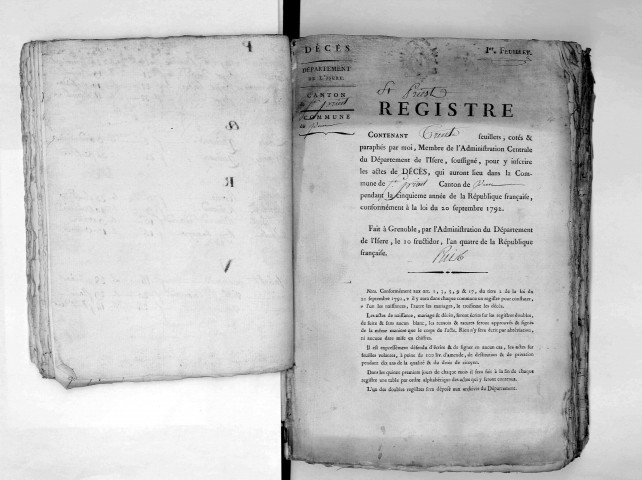 DÉCÈS.
DÉPARTEMENT
DE L'ISERE.
CANTON
de St. priest
COMMUNE
de
1er. FEUILLET.
St Priest
REGISTRE
CONTENANT feuillets, cotés &
paraphés par moi, Membre de l'Administration Centrale
du Département de l'Isere, soussigné, pour y inscrire
les actes de DÉCÈS, qui auront lieu dans la Com-
mune de St. priest Canton de
pendant la cinquieme année de la République française,
conformément à la loi du 20 septembre 1792.
Fait à Grenoble, par l'Administration du Département
de l'Isere, le 10 fructidor, l'an quatre de la République
française.
Nota. Conformément aux art. 1, 3, 5, 9 & 17, du titre 2 de la loi du
20 septembre 1792, il y aura dans chaque commune un registre pour constater,
l'un les naissances, l'autre les mariages, le troisieme les décès.
Les actes de naissance, mariage & décès, seront écrits sur les registres doubles,
de suite & sans aucun blanc, les renvois & ratures seront approuvés & signés
de la même maniere que le corps de l'acte. Rien n'y sera écrit par abréviation,
ni aucune date mise en chiffres.
Il est expressément défendu d'écrire & de signer en aucun cas, les actes sur
feuilles volantes, à peine de 100 liv. d'amende, de destitution & de privation
pendant dix ans de la qualité & du droit de citoyen.
Dans les quinze premiers jours de chaque mois il sera fait à la fin de chaque
registre une table par ordre alphabétique des actes qui y seront contenus.
L'un des doubles registres sera déposé aux archives du Département.